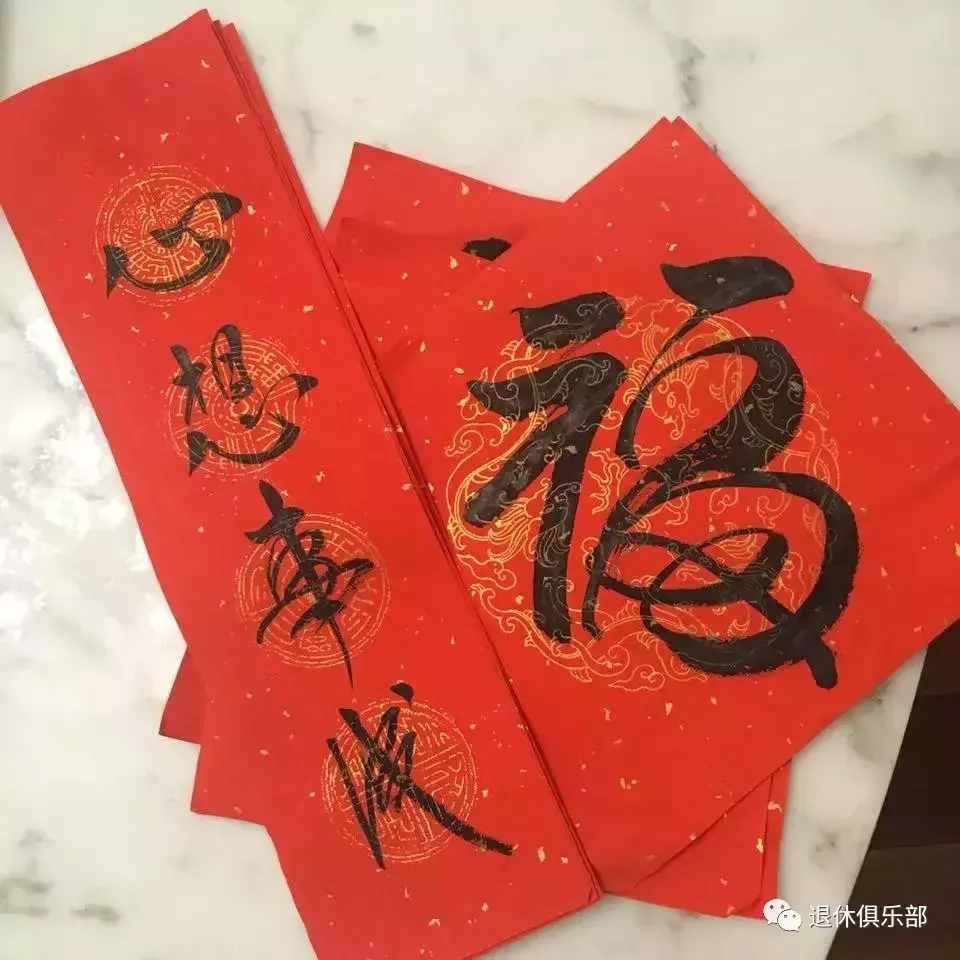 心想事成
福
退休俱乐部